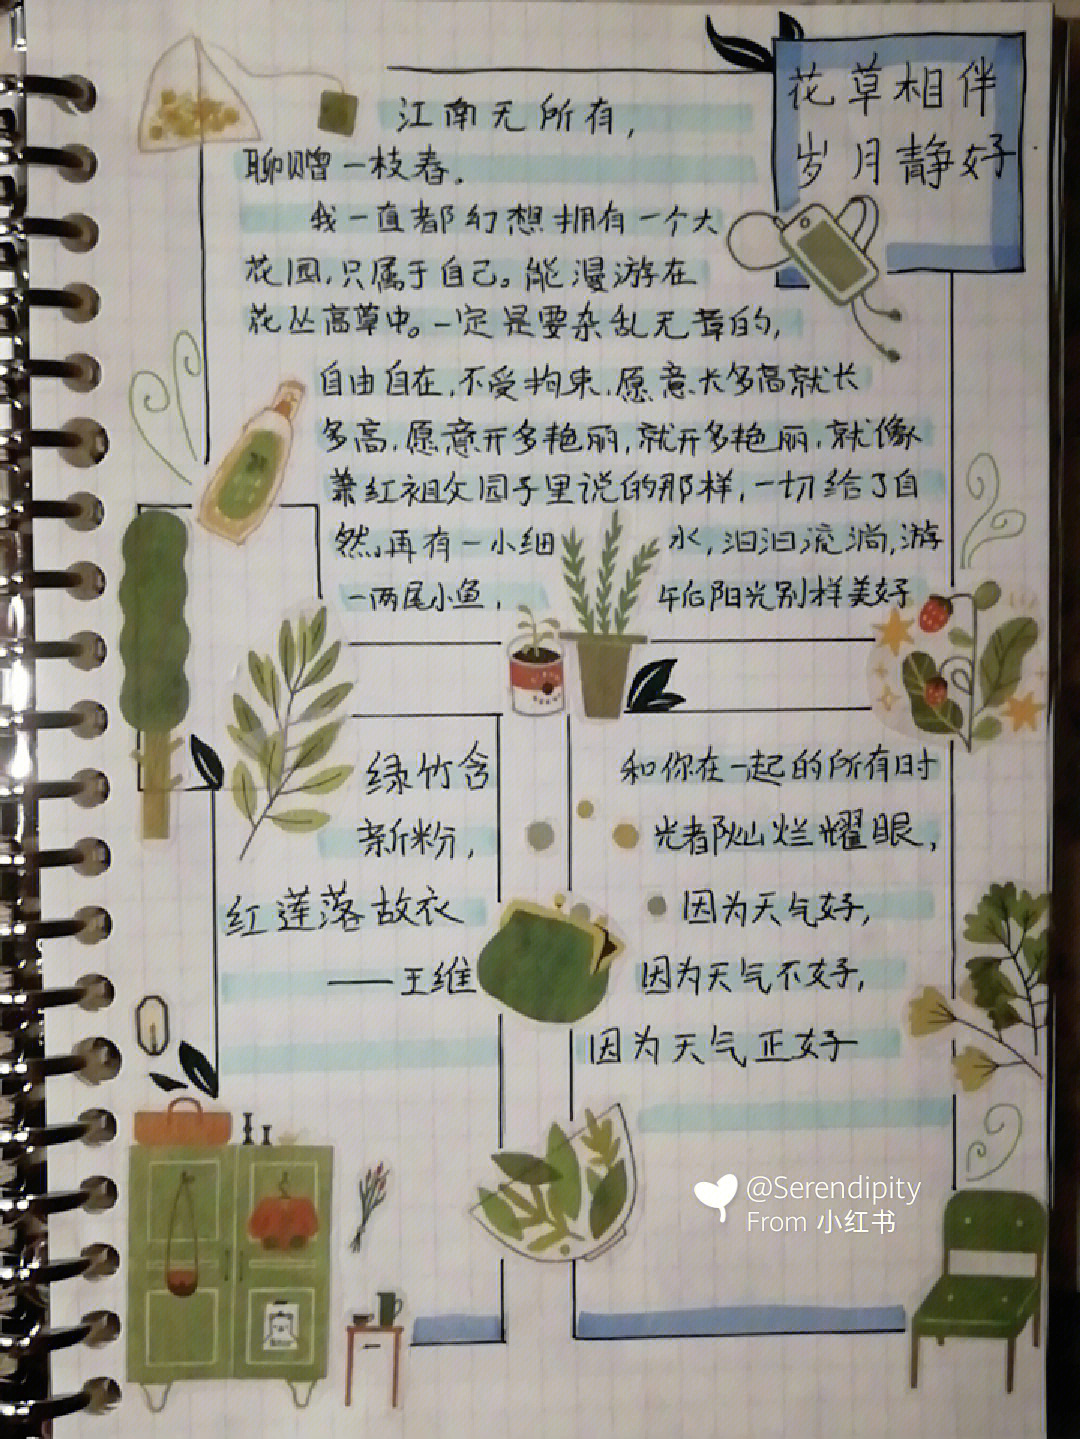 花草相伴
岁月静好
江南无所有，
聊赠一枝春。
我一直都幻想拥有一个大
花园，只属于自己。能漫游在
花丛高草中。一定是要杂乱无章的，
自由自在，不受拘束，愿意长多高就长
多高，愿意开多艳丽，就开多艳丽，就像
萧红祖父园子里说的那样，一切给了自
然，再有一小细水，汩汩流淌，游
一两尾小鱼，午后阳光别样美好
绿竹含
新粉，
红莲落故衣
——王维
和你在一起的所有时
光都灿烂耀眼，
因为天气好，
因为天气不好，
因为天气正好
@Serendipity
From 小红书